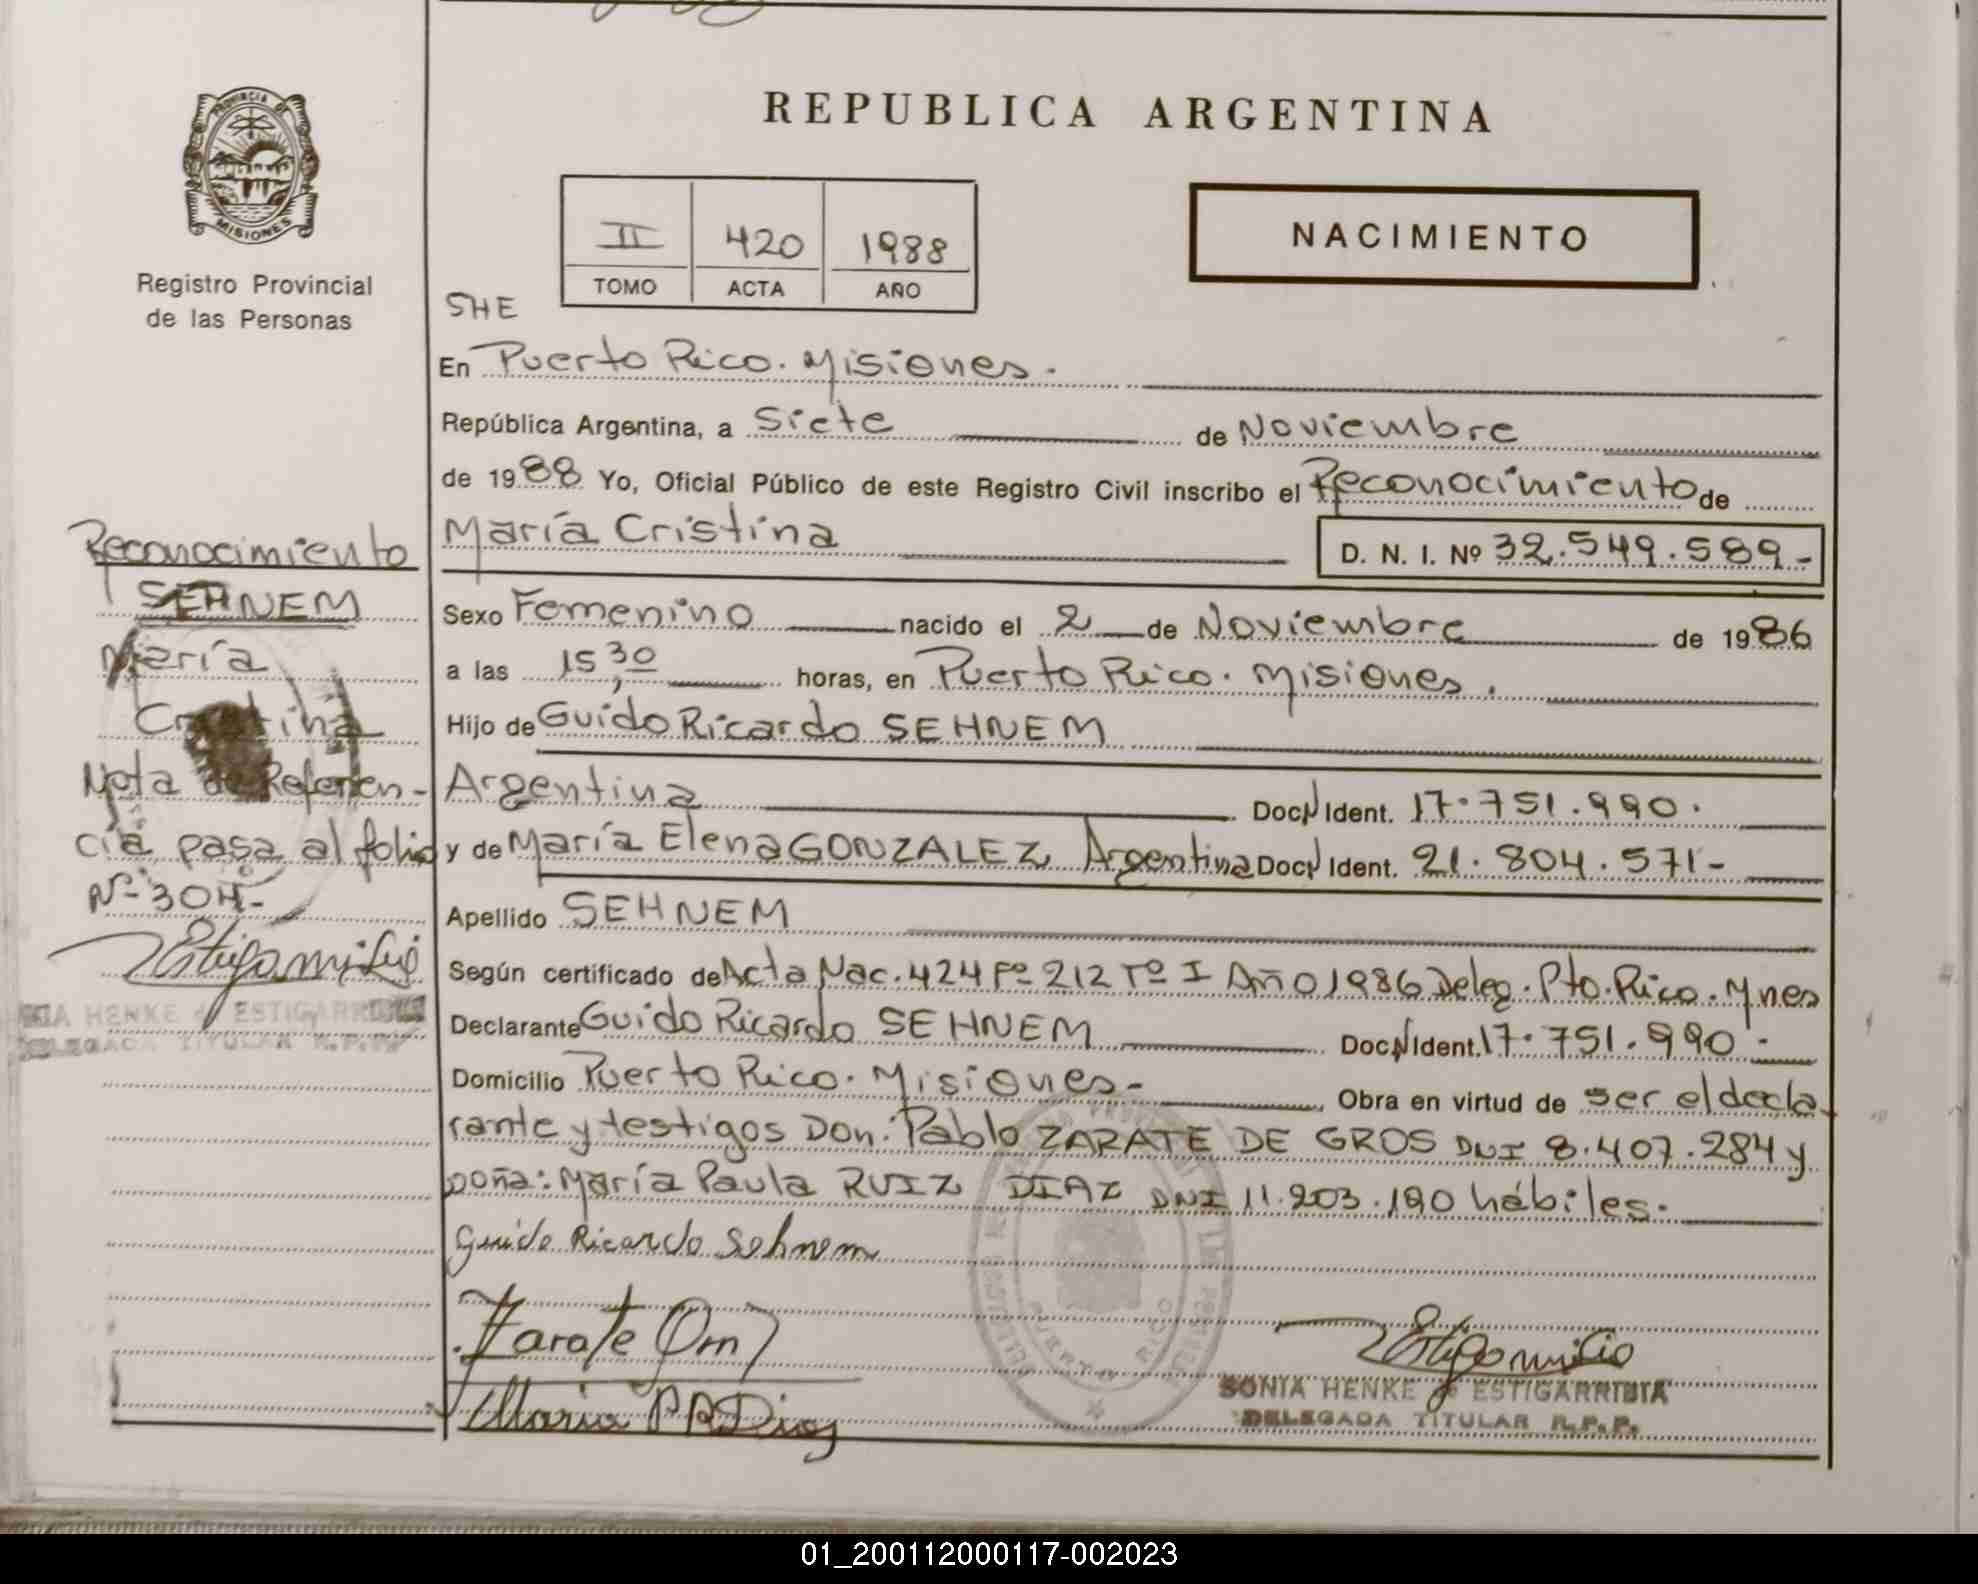 REPUBLICA ARGENTINA
PROVINCIA DE
MISIONES
Registro Provincial
de las Personas
II 420 1988
TOMO ACTA AÑO
NACIMIENTO
SHE
En Puerto Rico. Misiones.
República Argentina, a Siete de Noviembre
de 1988 Yo, Oficial Público de este Registro Civil inscribo el Reconocimiento de
María Cristina D. N. I. Nº 32.549.589-
Sexo Femenino nacido el 2 de Noviembre de 1986
a las 15,30 horas, en Puerto Rico. Misiones.
Hijo de Guido Ricardo SEHNEM
Argentina Doc. Ident. 17.751.990.
y de María Elena GONZALEZ Argentina Doc. Ident. 21.804.571-
Apellido SEHNEM
Según certificado de Acta Nac. 424 Fº 212 Tº I Año 1986 Deleg. Pto. Rico. Mnes
Declarante Guido Ricardo SEHNEM Doc. Ident. 17.751.990.
Domicilio Puerto Rico. Misiones- Obra en virtud de ser el decla
rante y testigos Don. Pablo ZARATE DE GROS DNI 8.407.284 y
Doña: María Paula RUIZ DIAZ DNI 11.203.190 hábiles.
Guido Ricardo Sehnem
Zarate
Maria
SONIA HENKE de ESTIGARRIBIA
DELEGADA TITULAR R.P.P.
PUERTO RICO
Reconocimiento
SEHNEM
María
Cristina
Nota de Referen-
cia pasa al folio
Nº 304-
SONIA HENKE de ESTIGARRIBIA
DELEGADA TITULAR R.P.P.
01_200112000117-002023